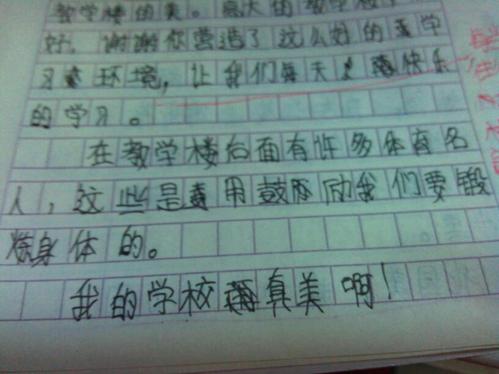 教学楼的美。高大的教学楼
好，谢谢你营造了这么好的学
习环境，让我们每天愉快乐
的学习。
在教学楼后面有许多体育名
人，这些是用鼓励我们要锻
炼身体的。
我的学校真美啊！